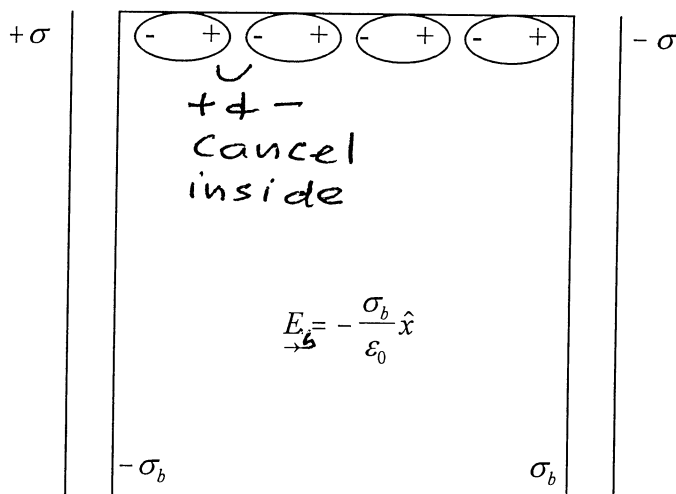 +σ - + - + - + - + - σ
+ & -
cancel
inside
E_b = - σ_b / ε_0 x̂
-σ_b σ_b